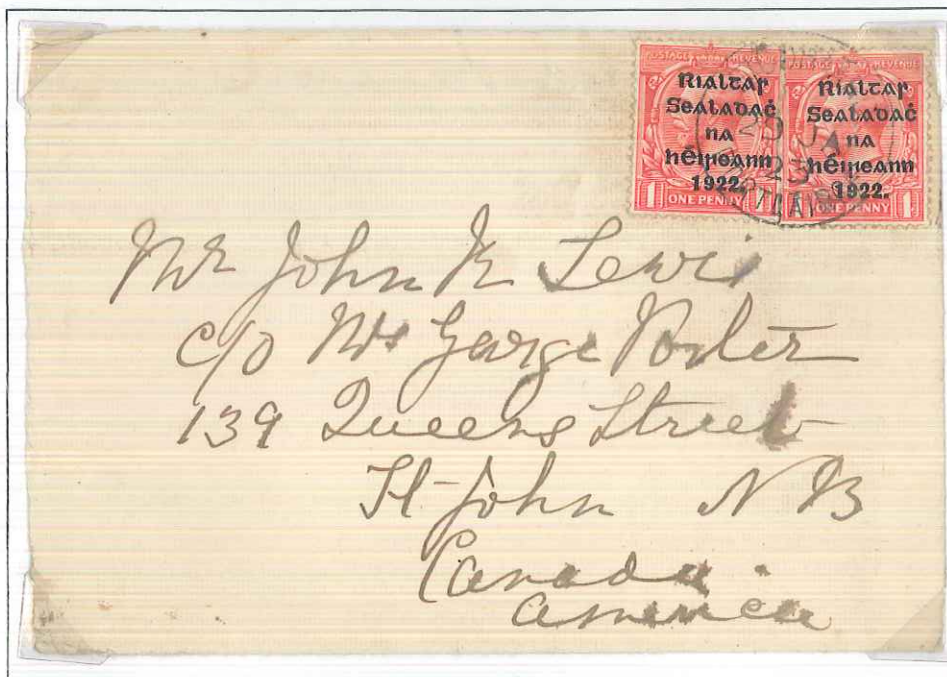 POSTAGE REVENUE
Rialtas
Sealadaċ
na
hÉireann
1922.
1 ONE PENNY
POSTAGE REVENUE
Rialtas
Sealadaċ
na
hÉireann
1922.
ONE PENNY 1
29 JA
23
Mr John Lewis
c/o Mr George Porter
139 Queens Street
St John N B
Canada
America